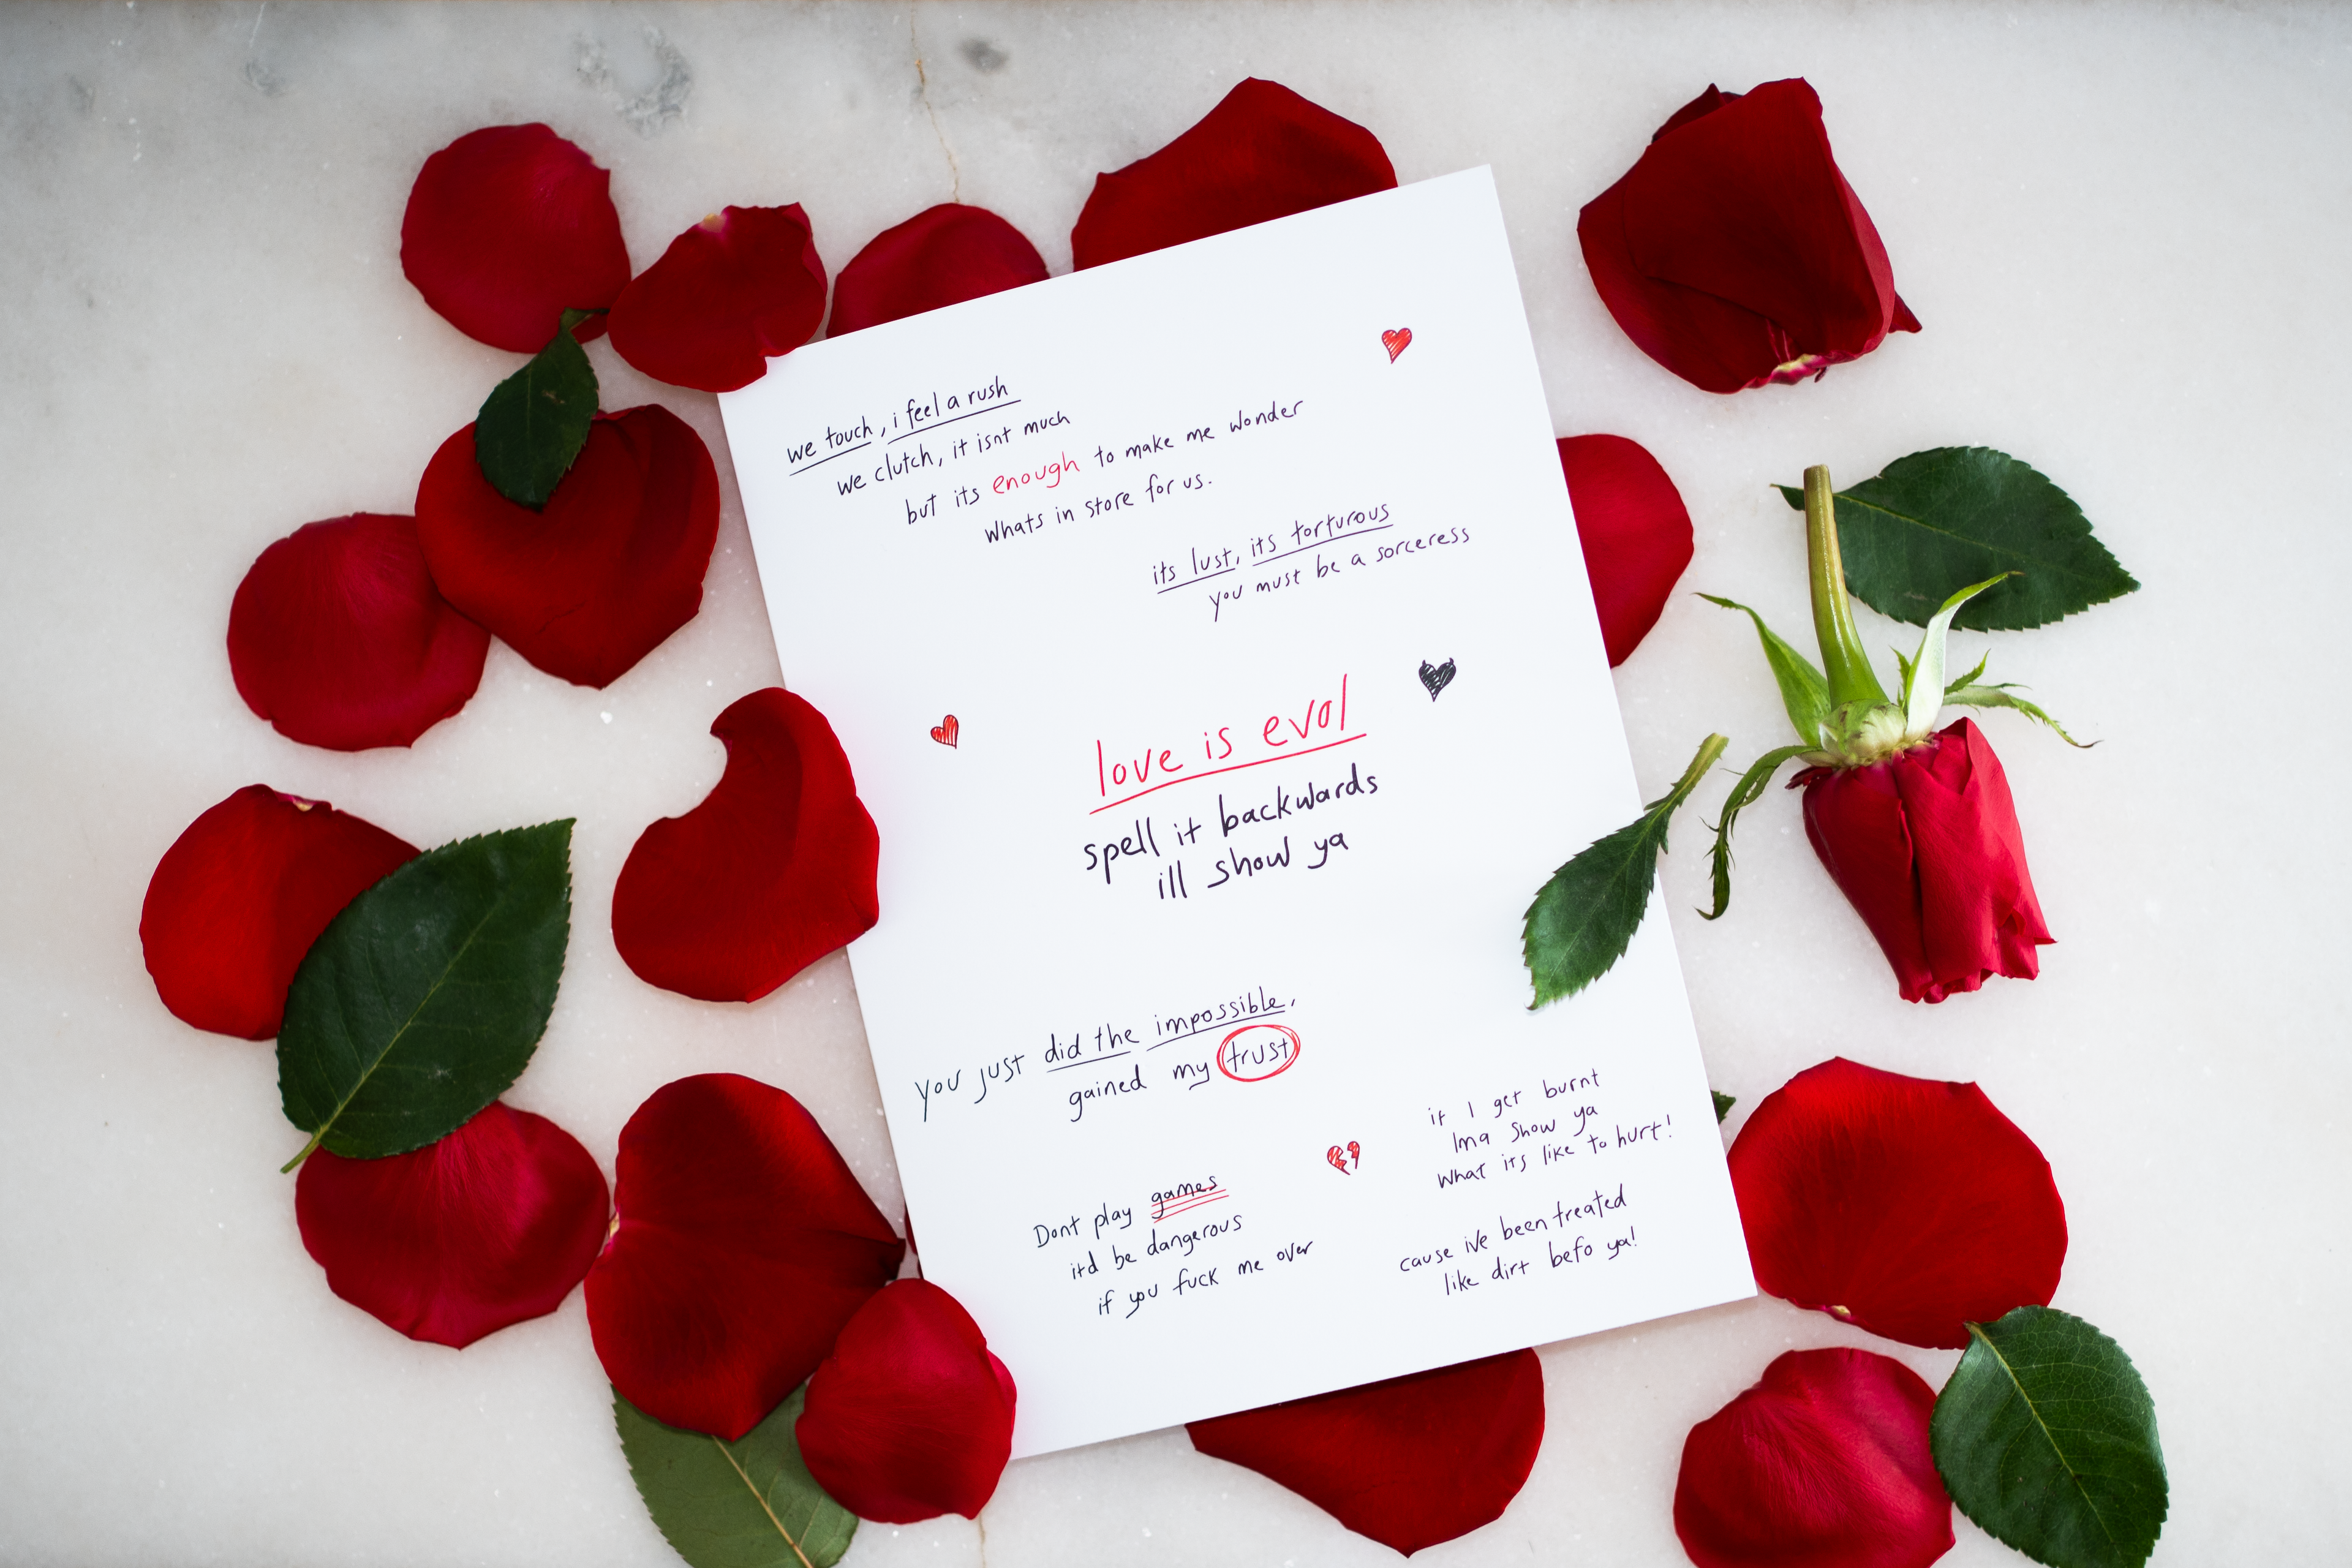 we touch, i feel a rush
we clutch, it isnt much
but its enough to make me wonder
whats in store for us.
its lust, its torturous
you must be a sorceress
love is evol
spell it backwards
ill show ya
you just did the impossible,
gained my trust
Dont play games
itd be dangerous
if you fuck me over
if I get burnt
Ima show ya
what its like to hurt!
cause ive been treated
like dirt befo ya!